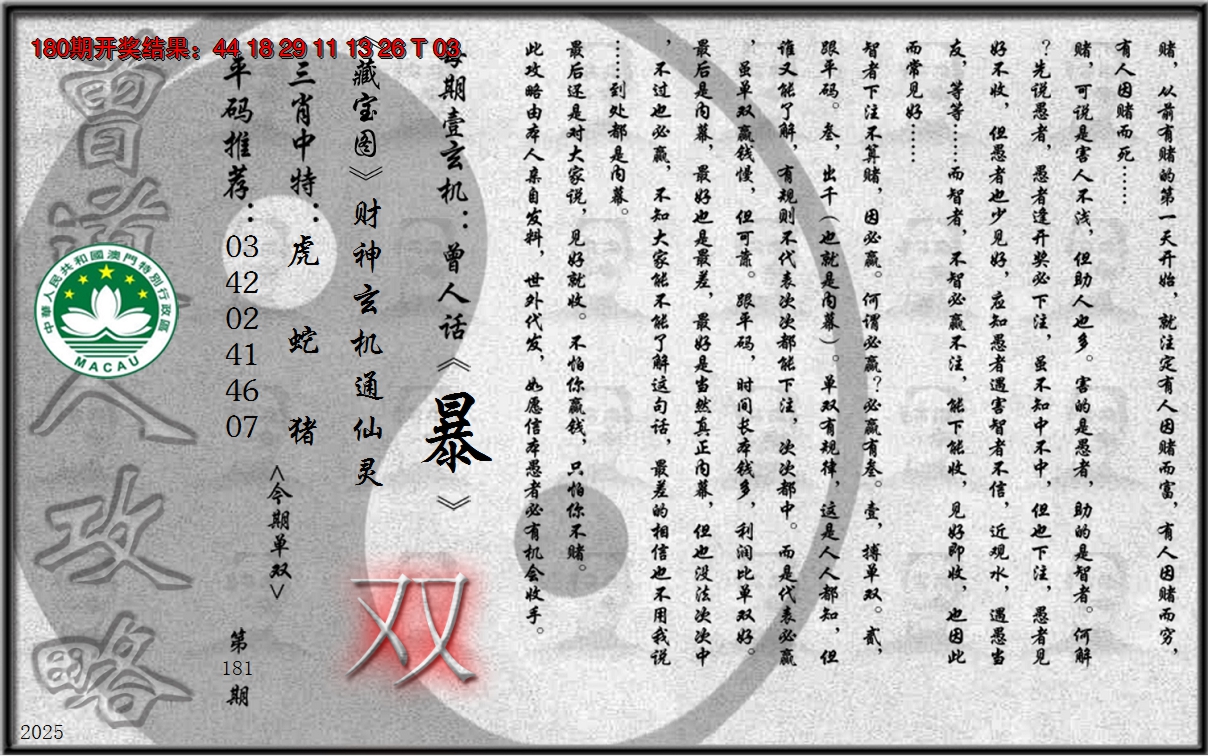 180期开奖结果：44 18 29 11 13 26 T 03
赌，从前有赌的第一天开始，就注定有人因赌而富，有人因赌而穷，
有人因赌而死……
赌，可说是害人不浅，但助人也多。害的是愚者，助的是智者。何解
？先说愚者，愚者逢开奖必下注，虽不知中不中，但也下注，愚者见
好不收，但愚者也少见好，应知愚者遇害智者不信，近观水，遇愚当
友，等等……而智者，不智必赢不注，能下能收，见好即收，也因此
而常见好……
智者下注不算赌，因必赢。何谓必赢？必赢有叁。壹，搏单双。贰，
跟平码。叁，出千（也就是内幕）。单双有规律，这是人人都知，但
谁又能了解，有规则不代表次次都能下注，次次都中。而是代表必赢
，虽单双赢钱慢，但可靠。跟平码，时间长本钱多，利润比单双好。
最后是内幕，最好也是最差，最好是当然真正内幕，但也没法次次中
，不过也必赢，不知大家能不能了解这句话，最差的相信也不用我说
……到处都是内幕。
最后还是对大家说，见好就收。不怕你赢钱，只怕你不赌。
此攻略由本人亲自发料，世外代发，如愿信本愚者必有机会收手。
每期壹玄机：曾人话《暴》
《藏宝图》财神玄机通仙灵
双
三肖中特：虎 蛇 猪
<今期单双>
平码推荐：03 42 02 41 46 07
第181期
曾道人攻略
中華人民共和國澳門特別行政區
MACAU
2025